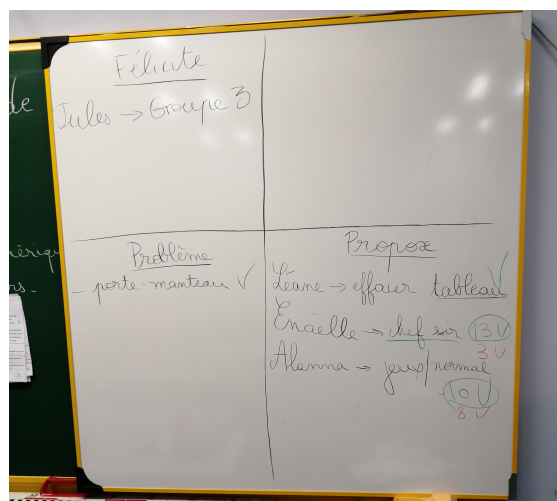 Félicite
Jules → Groupe 3
Problème
- porte-manteau V
Propose
Léane → effacer tableau V
Enaelle → chef soir 13 V
3 V
Alanna → jeux/normal
10 V
8 V
de
ériqu
rs.